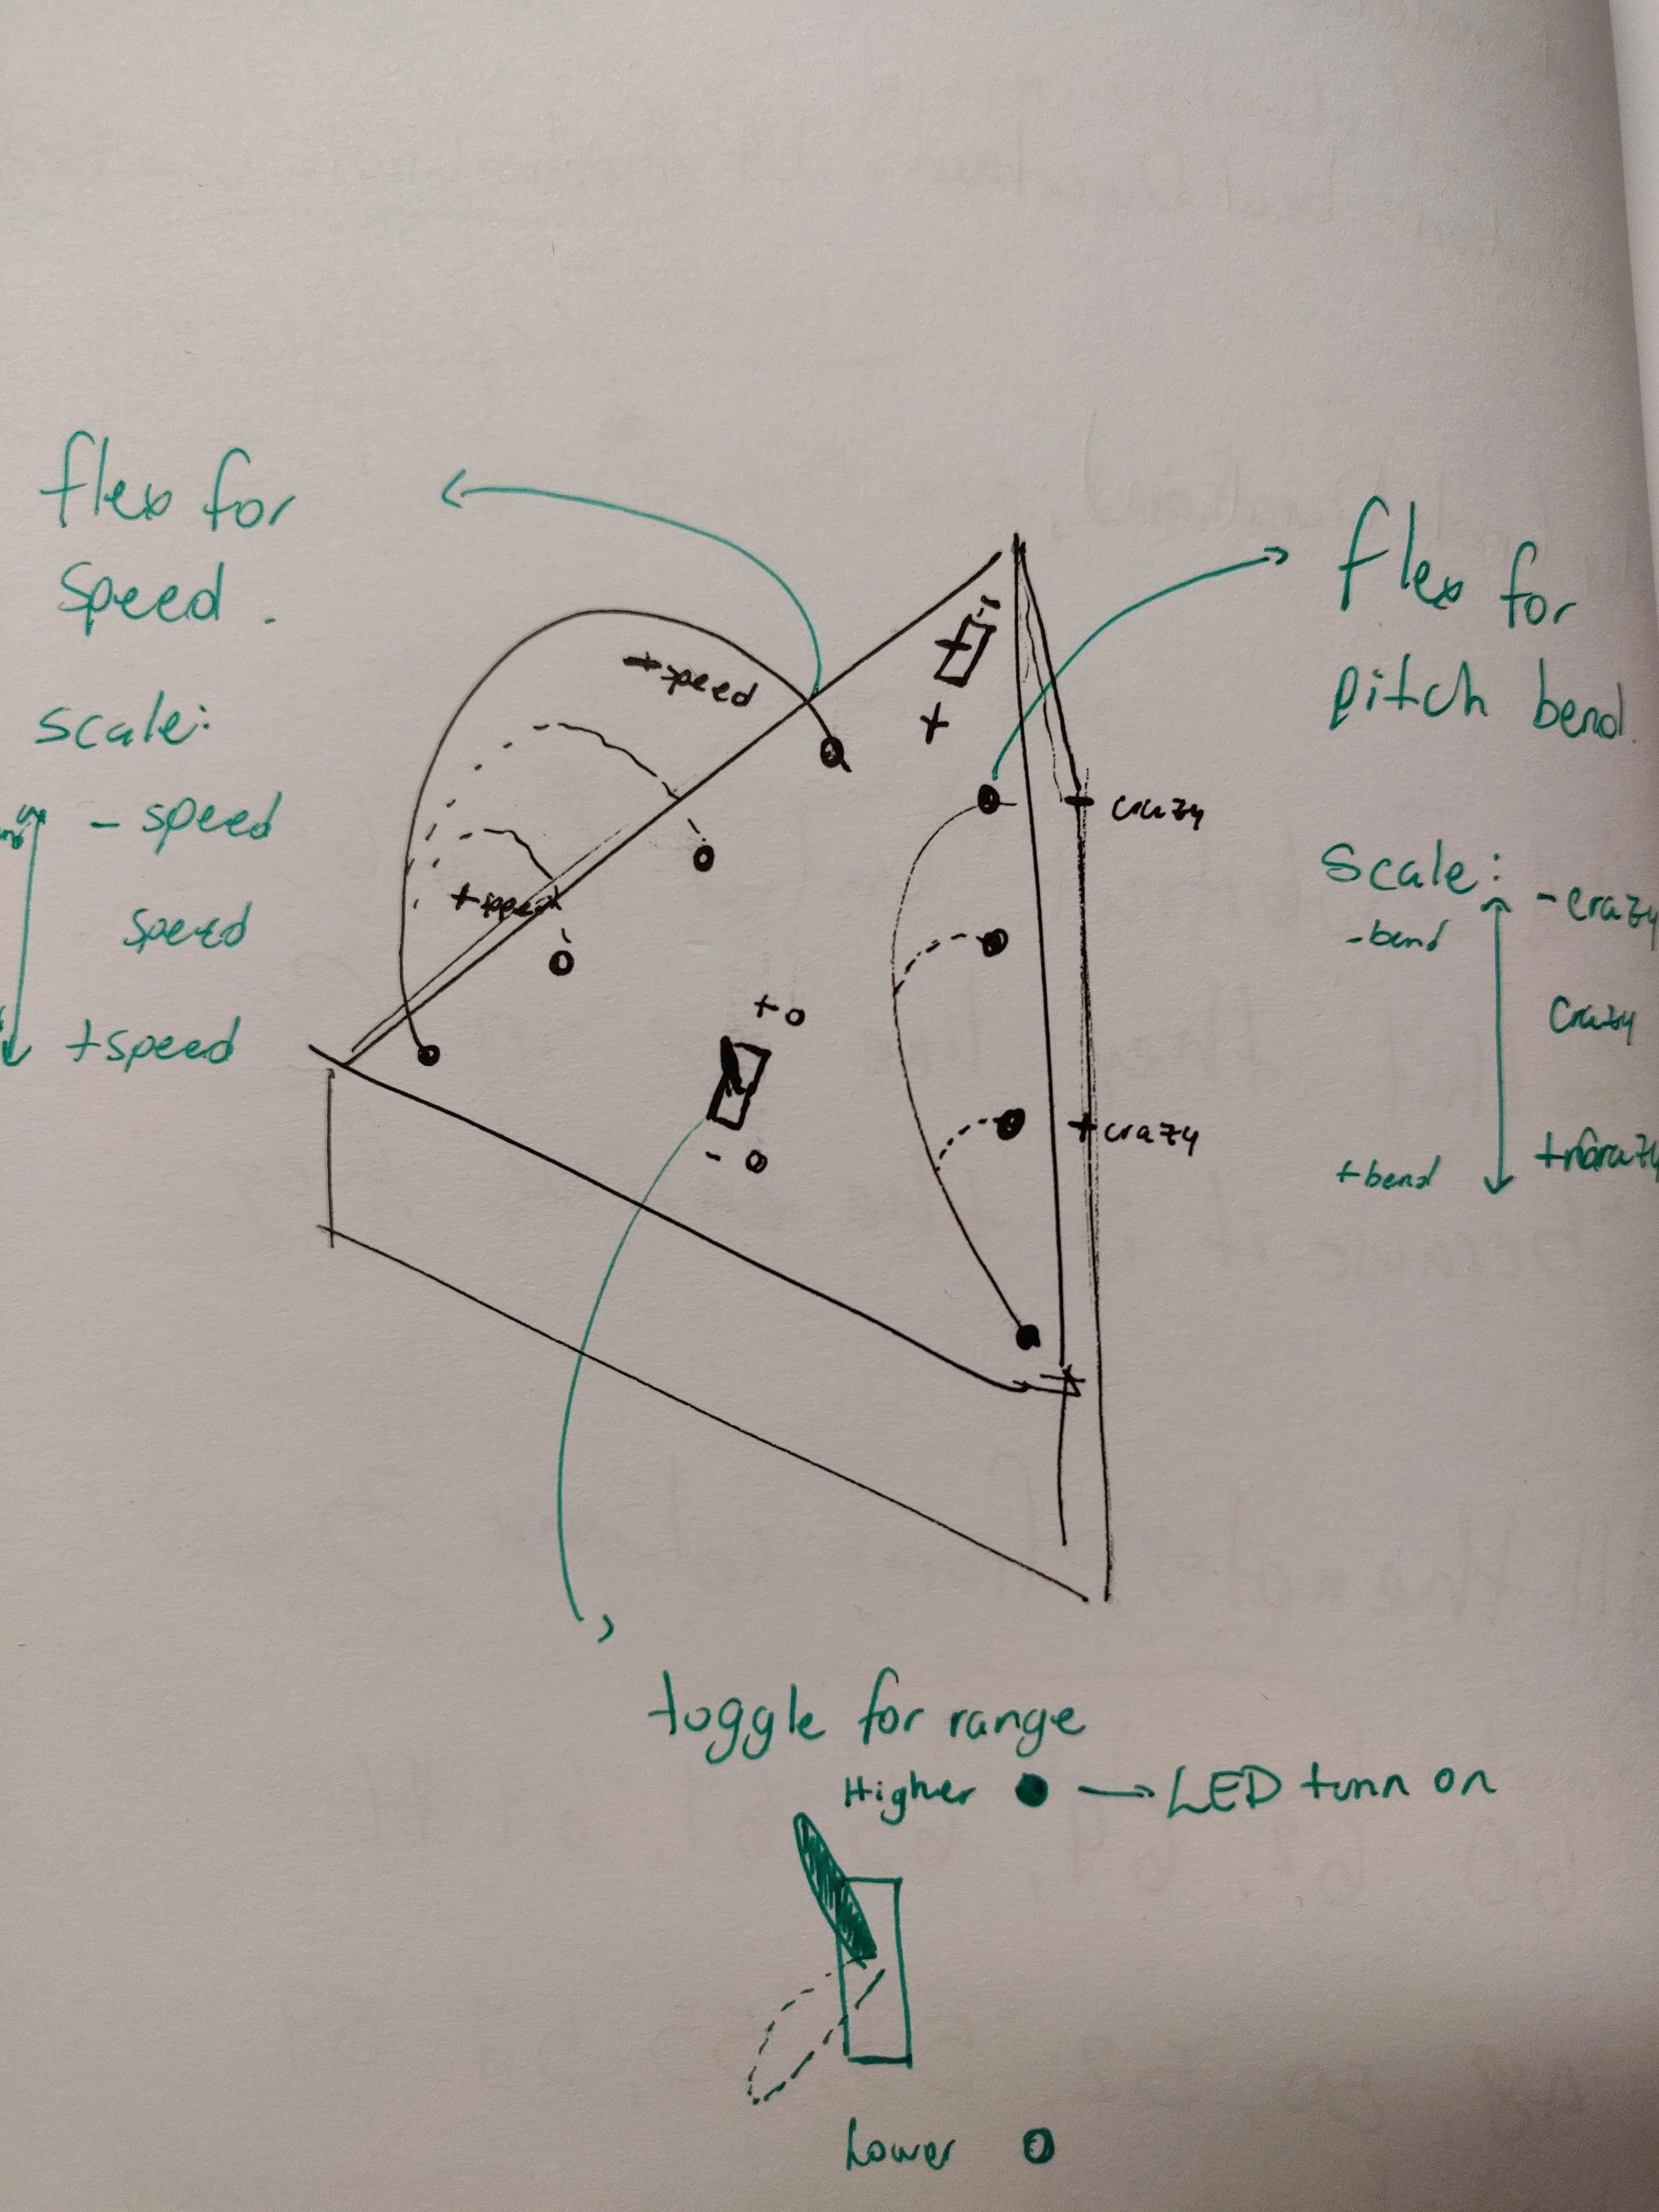 flex for
speed.
scale:
- speed
speed
+ speed
+ speed
+ speed
-
+
flex for
pitch bend.
crazy
+crazy
scale:
-bend
+bend
- crazy
crazy
+ o
- o
toggle for range
Higher → LED turn on
Lower